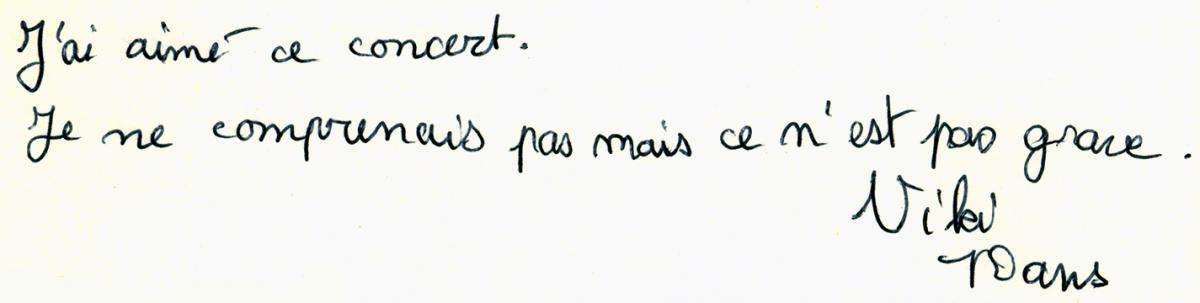 J'ai aimé ce concert.
Je ne comprenais pas mais ce n'est pas grave.
Viki
10 ans